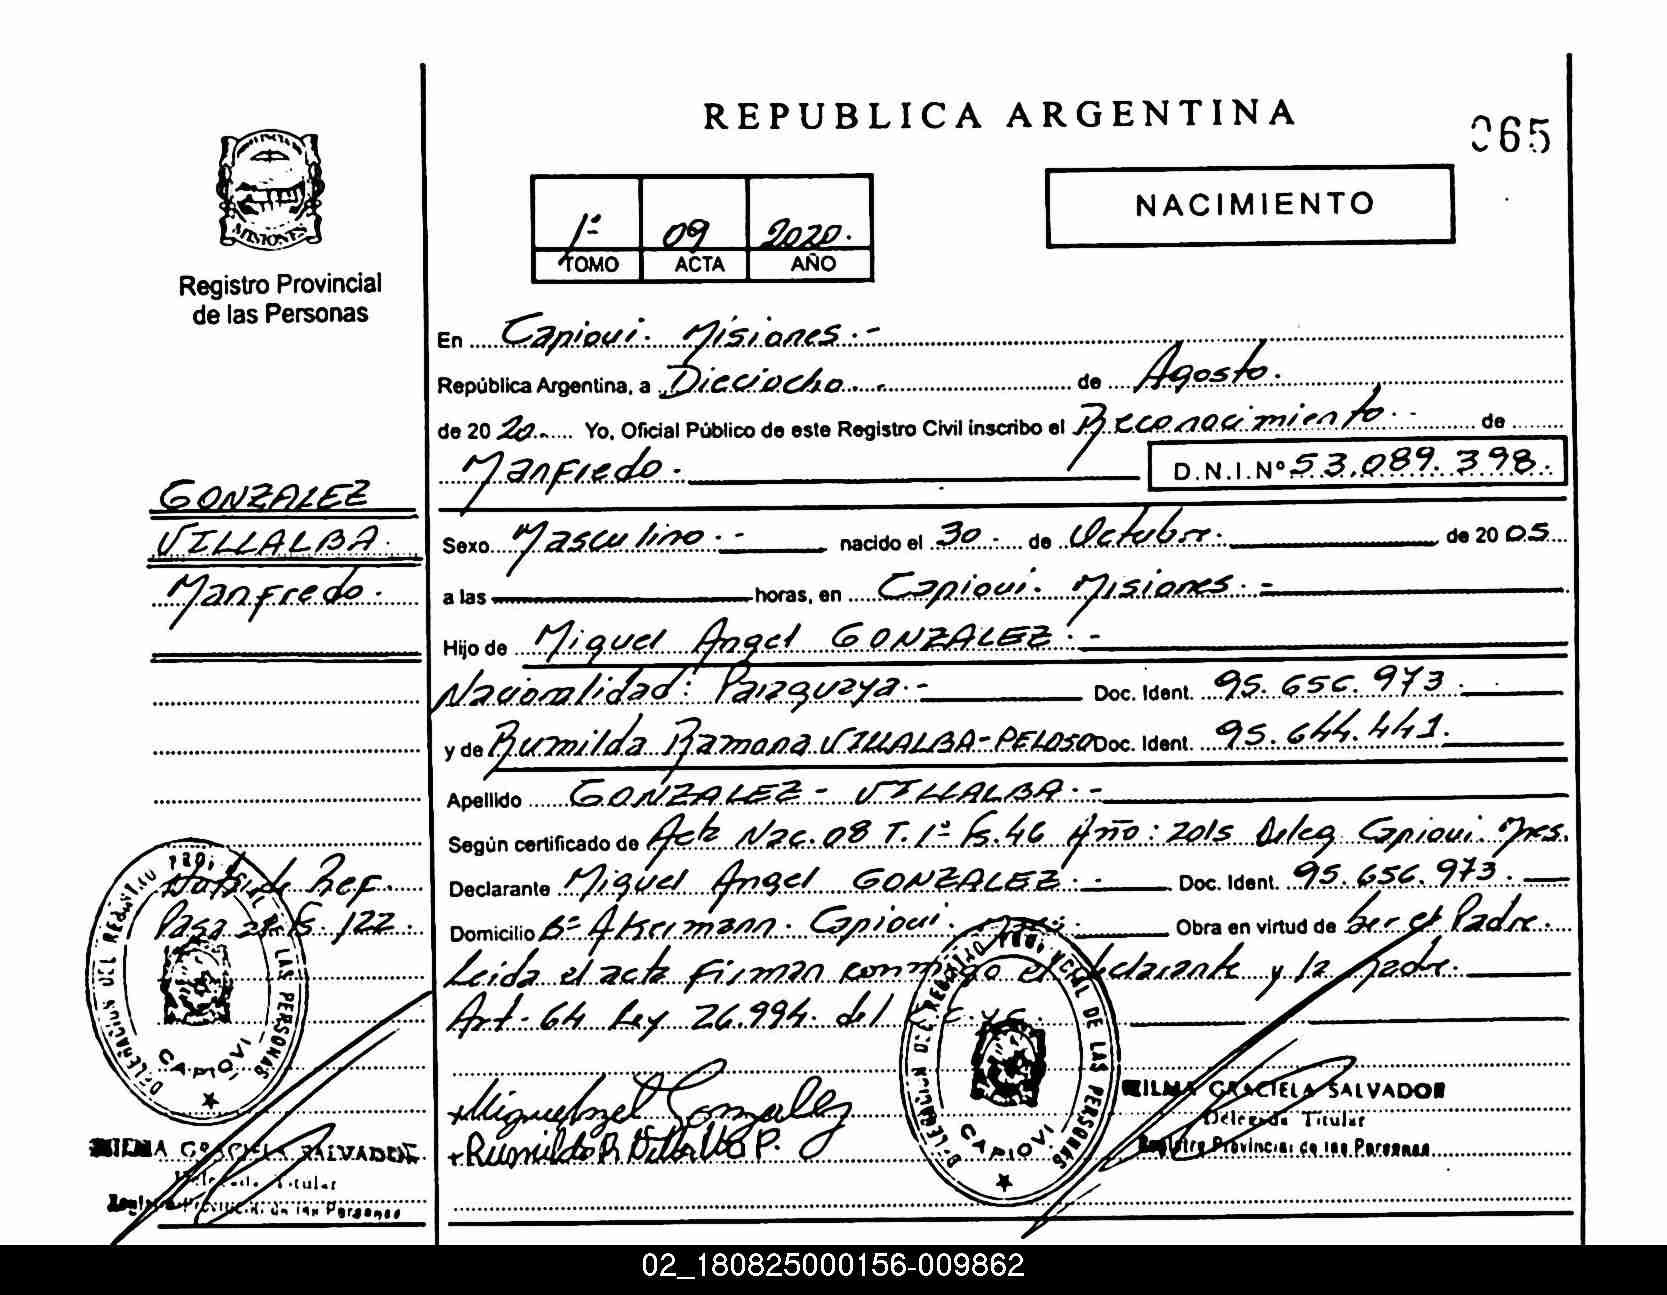 REPUBLICA ARGENTINA
065
NACIMIENTO
1º 09 2020.
TOMO ACTA AÑO
MISIONES
Registro Provincial
de las Personas
En Capiovi. Misiones.-
República Argentina, a Dieciocho de Agosto.
de 20 20. Yo, Oficial Público de este Registro Civil inscribo el Reconocimiento.- de
Manfredo. D.N.I.Nº 53.089.398.
GONZALEZ
VILLALBA.
Manfredo.
Sexo Masculino.- nacido el 30. de Octubre. de 20 05
a las horas, en Capiovi. Misiones.-
Hijo de Miguel Angel GONZALEZ.-
Nacionalidad: Paraguaya.- Doc. Ident. 95.656.973.
y de Rumilda Ramona VILLALBA-PELOSO Doc. Ident. 95.644.441.
Apellido GONZALEZ - VILLALBA.-
Según certificado de Acta Nac. 08 T. 1º Fs. 46 Año: 2015 Deleg. Capiovi. Mnes.
Declarante Miguel Angel GONZALEZ.- Doc. Ident. 95.656.973.
Domicilio Bº Akermann. Capiovi. Obra en virtud de Ser el Padre.
Leida el acta firman conmigo el declarante y la madre.
Art. 64 Ley 26.994. del C.C.y C.
Nota de Ref.
Pasa al Fs. 122.
DELEGACION DEL REGISTRO PROVINCIAL DE LAS PERSONAS
CAPIOVI
DELEGACION DEL REGISTRO PROVINCIAL DE LAS PERSONAS
CAPIOVI
Miguel Angel Gonzalez
Rumilda R Villalba P.
WILMA GRACIELA SALVADOR
Delegada Titular
Registro Provincial de las Personas
WILMA GRACIELA SALVADOR
Delegada Titular
Registro Provincial de las Personas
02_180825000156-009862